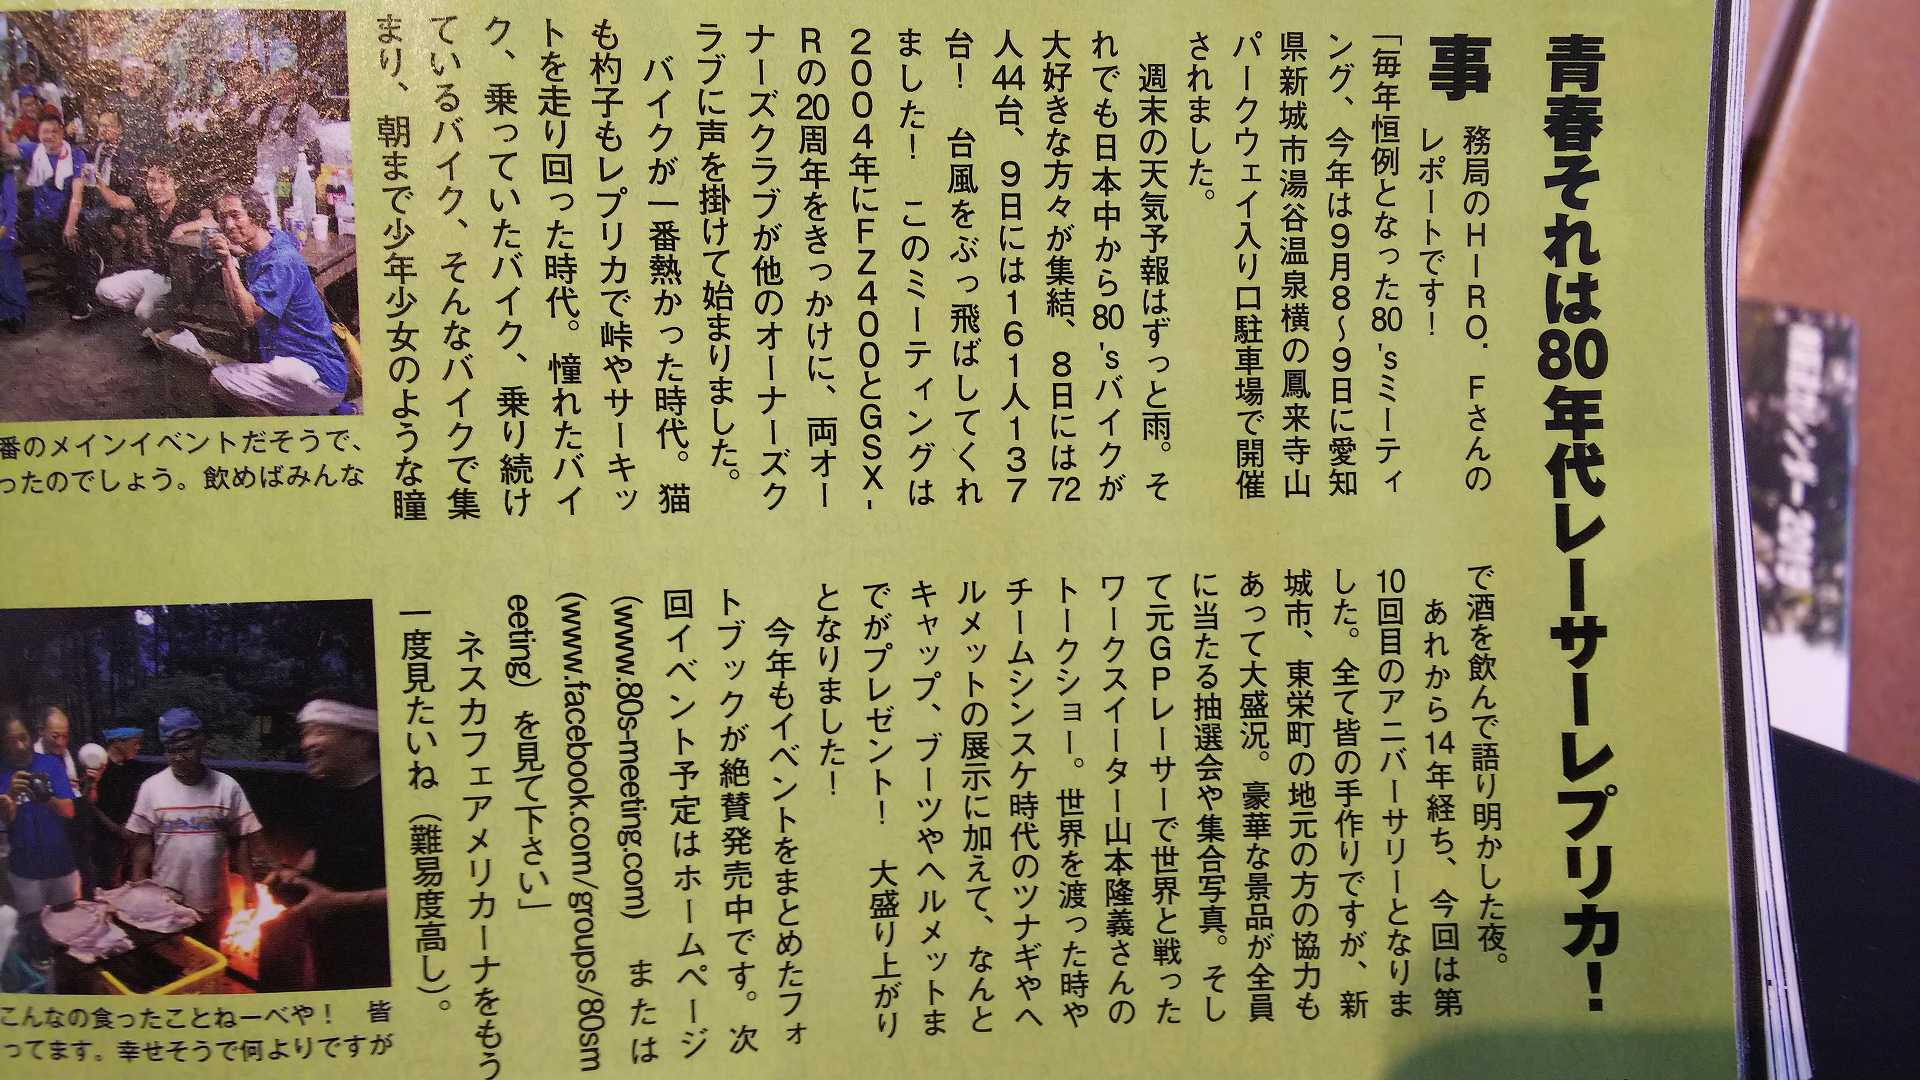 青春それは80年代レーサーレプリカ!
事
務局のHIRO.Fさんの
レポートです!
「毎年恒例となった80'sミーティ
ング、今年は9月8〜9日に愛知
県新城市湯谷温泉横の鳳来寺山
パークウェイ入り口駐車場で開催
されました。
週末の天気予報はずっと雨。そ
れでも日本中から80'sバイクが
大好きな方々が集結、8日には72
人44台、9日には161人137
台! 台風をぶっ飛ばしてくれ
ました! このミーティングは
2004年にFZ400とGSX-
Rの20周年をきっかけに、両オー
ナーズクラブが他のオーナーズク
ラブに声を掛けて始まりました。
バイクが一番熱かった時代。猫
も杓子もレプリカで峠やサーキッ
トを走り回った時代。憧れたバイ
ク、乗っていたバイク、乗り続け
ているバイク、そんなバイクで集
まり、朝まで少年少女のような瞳
で酒を飲んで語り明かした夜。
あれから14年経ち、今回は第
10回目のアニバーサリーとなりま
した。全て皆の手作りですが、新
城市、東栄町の地元の方の協力も
あって大盛況。豪華な景品が全員
に当たる抽選会や集合写真。そし
て元GPレーサーで世界と戦った
ワークスイーター山本隆義さんの
トークショー。世界を渡った時や
チームシンスケ時代のツナギやヘ
ルメットの展示に加えて、なんと
キャップ、ブーツやヘルメットま
でがプレゼント! 大盛り上がり
となりました!
今年もイベントをまとめたフォ
トブックが絶賛発売中です。次
回イベント予定はホームページ
(www.80s-meeting.com) または
(www.facebook.com/groups/80sm
eeting) を見て下さい」
ネスカフェアメリカーナをもう
一度見たいね(難易度高し)。
番のメインイベントだそうで、
ったのでしょう。飲めばみんな
こんなの食ったことねーべや! 皆
ってます。幸せそうで何よりですが